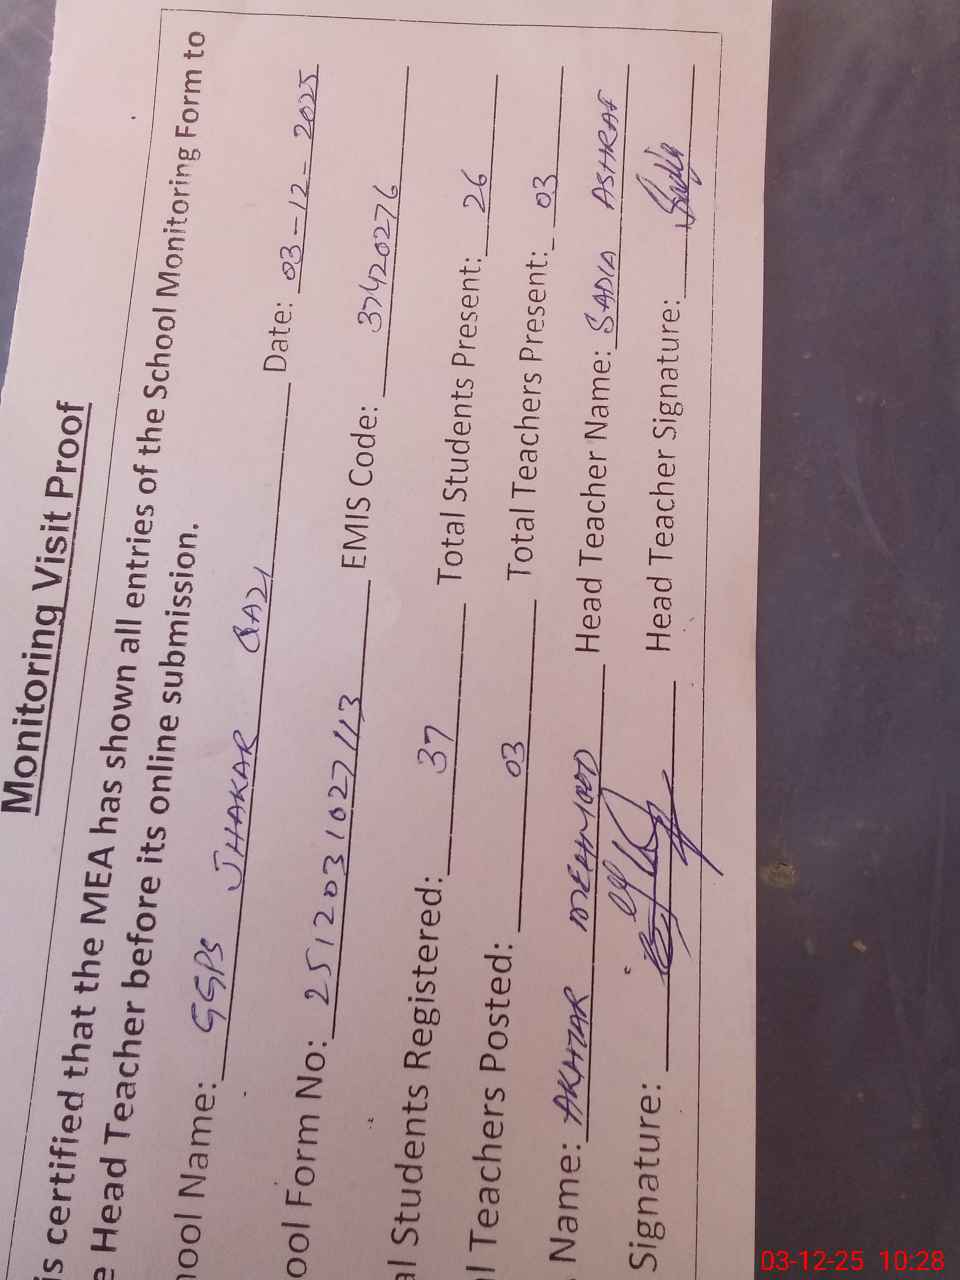 Monitoring Visit Proof
is certified that the MEA has shown all entries of the School Monitoring Form to
e Head Teacher before its online submission.
hool Name: GGPS JHAKAR QAZI Date: 03-12-2025
ool Form No: 2512031027113 EMIS Code: 37420276
al Students Registered: 37 Total Students Present: 26
l Teachers Posted: 03 Total Teachers Present: 03
Name: AKHTAR MEHMOOD Head Teacher Name: SADIA ASHRAF
Signature: Head Teacher Signature: Sadia
03-12-25 10:28